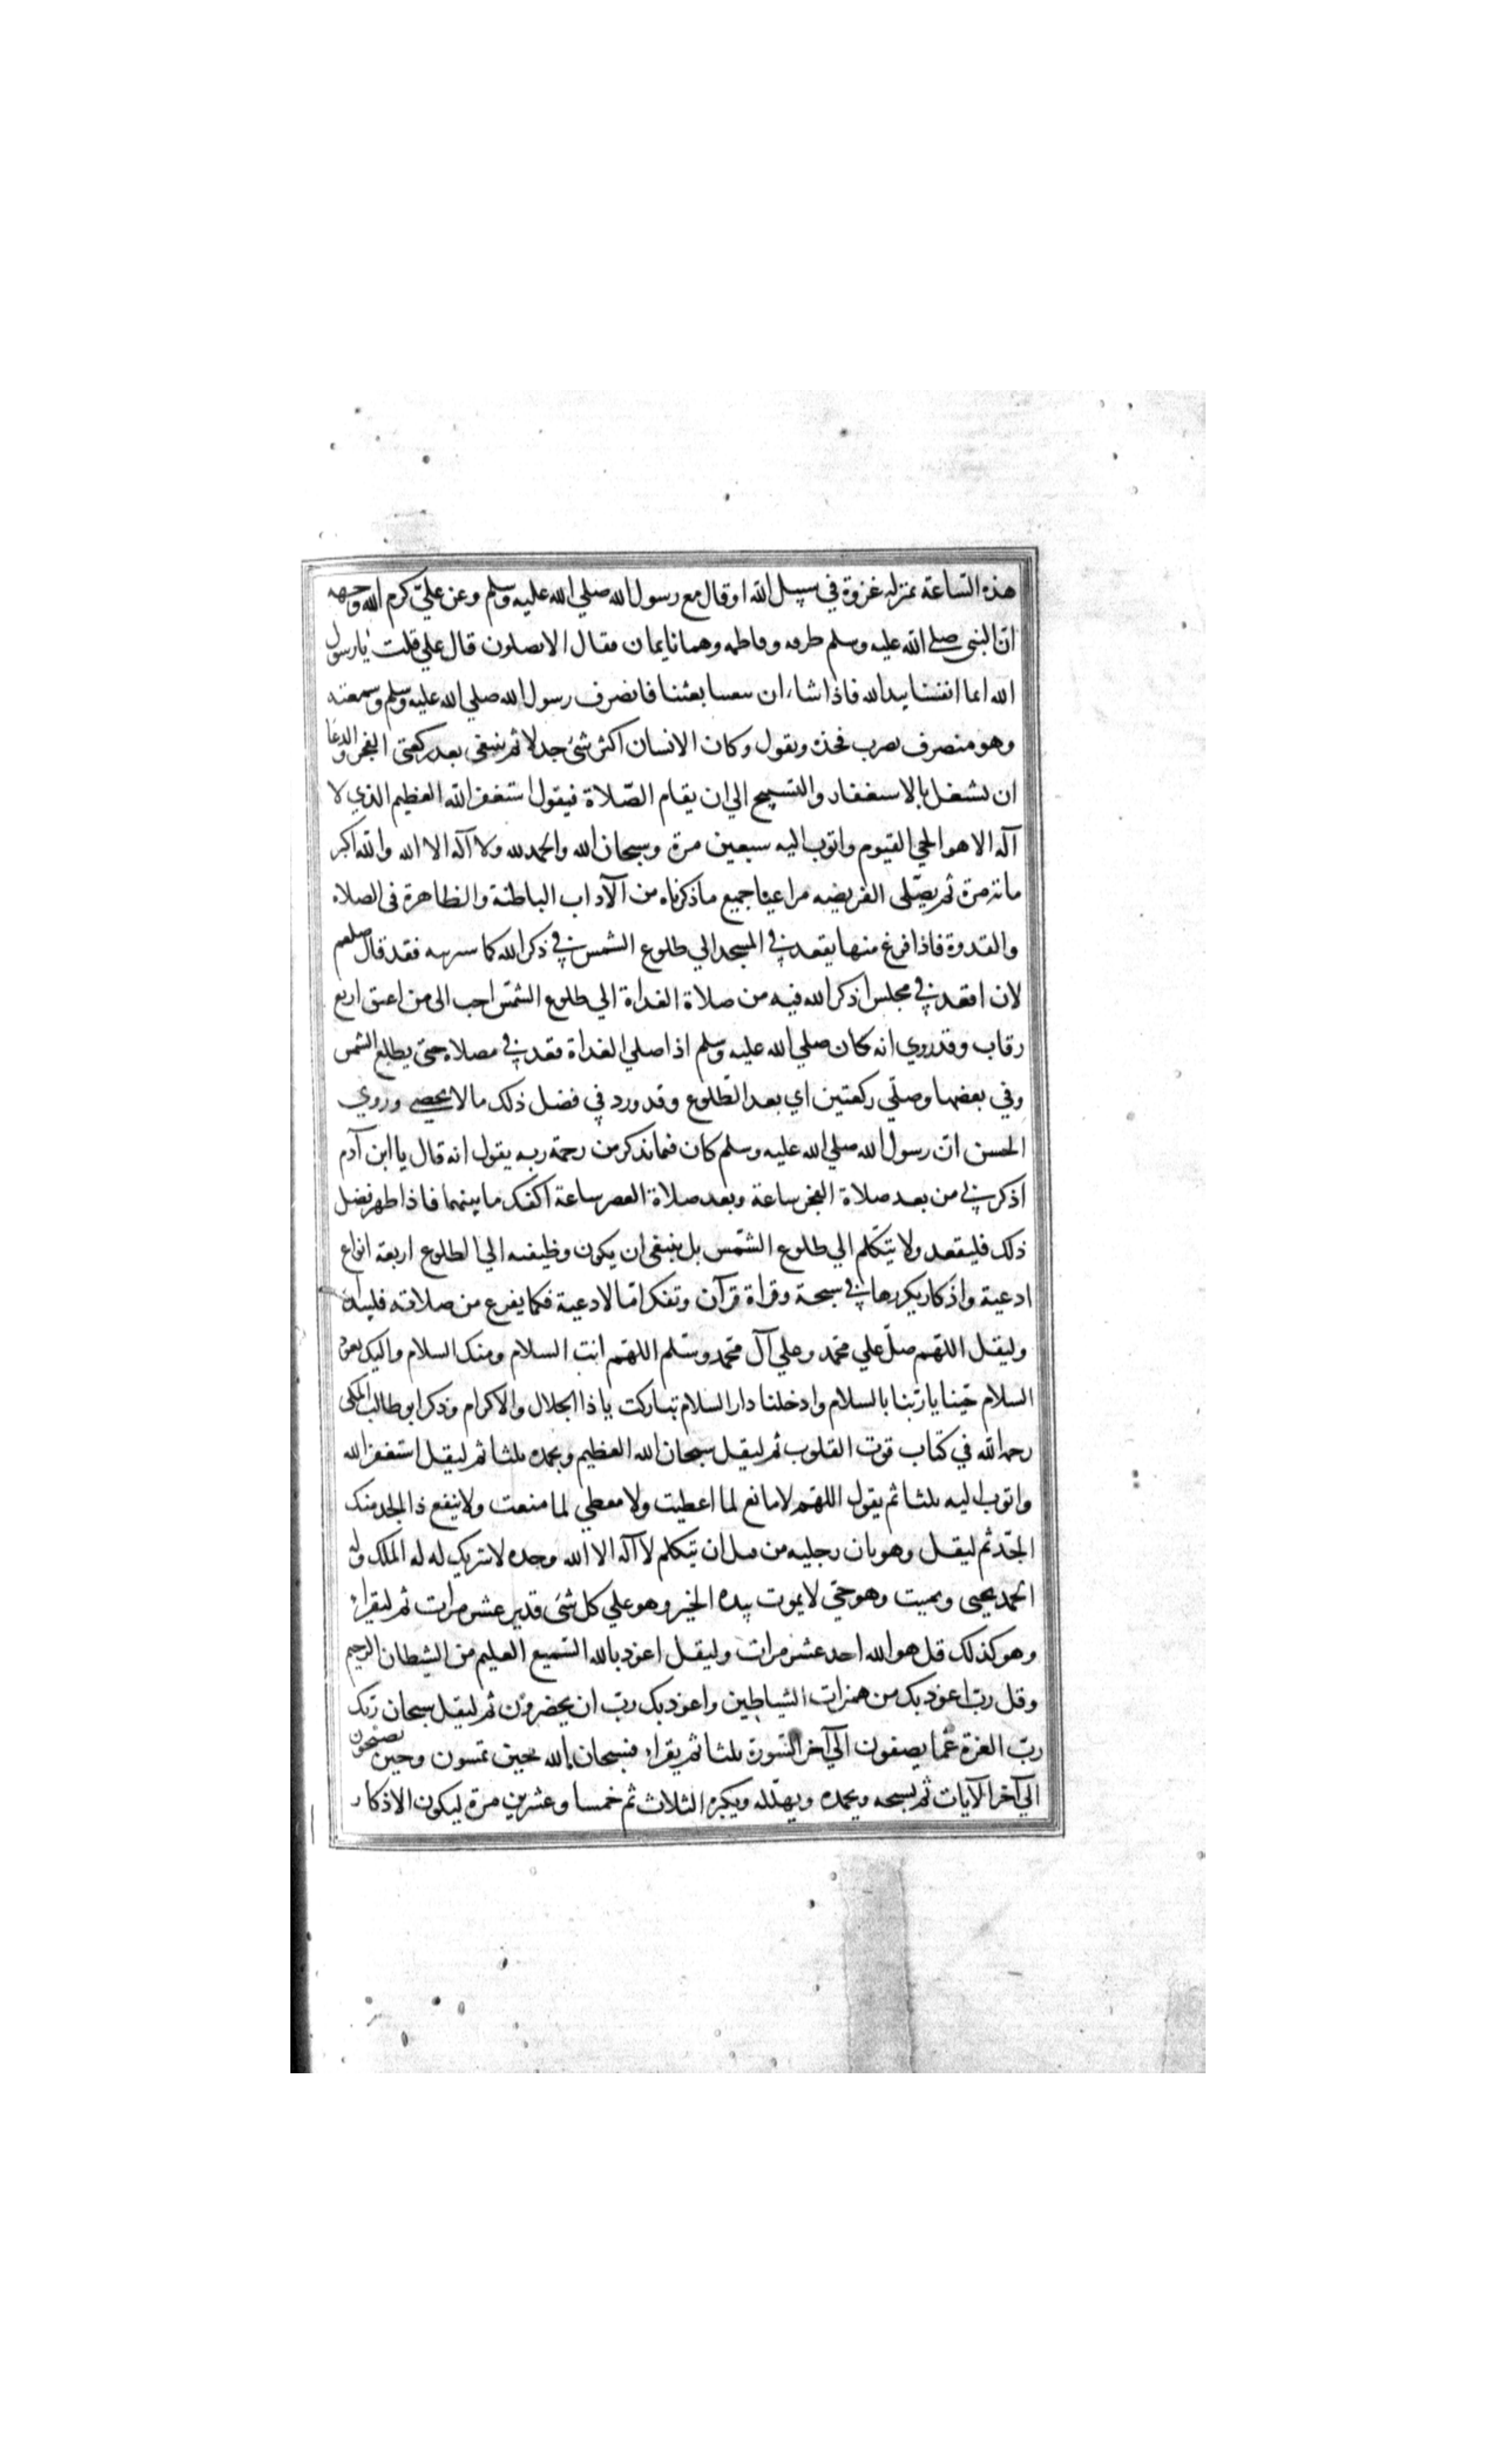 هذه الساعة بمنزله غزوة في سبيل الله او قال مع رسول الله صلي الله عليه وسلم وعن علي كرم الله وجهه
ان النبي صلى الله عليه وسلم طرقه وفاطمه وهما نايمان فقال الا تصلون قال علي قلت يا رسول
الله انما انفسنا بيد الله فاذا شاء ان يبعثنا بعثنا فانصرف رسول الله صلي الله عليه وسلم وسمعته
وهو منصرف يضرب فخذه ويقول وكان الانسان اكثر شئ جدلا ثم ينبغي بعد ركعتي الفجر والدعا
ان يشغل بالاستغفار والتسبيح الي ان يقام الصلاة فيقول استغفر الله العظيم الذي لا
آله الا هو الحي القيوم واتوب اليه سبعين مرة وسبحان الله والحمد لله ولا آله الا الله والله اكبر
مائة مرة ثم يصلى الفريضه مراعيا جميع ما ذكرناه من الآداب الباطنة والظاهرة فى الصلاه
والقدوة فاذا فرغ منها يقعد في المسجد الي طلوع الشمس في ذكر الله كما سنرتبه فقد قال صلعم
لان اقعد في مجلس اذكر الله فيه من صلاة الغداة الي طلوع الشمس احب الى من اعتق اربع
رقاب وقد روي انه كان صلي الله عليه وسلم اذا صلي الغداة قعد في مصلاه حتى يطلع الشمس
وفي بعضها وصلي ركعتين اي بعد الطلوع وقد ورد في فضل ذلك ما لا يحصى وروي
الحسن ان رسول الله صلي الله عليه وسلم كان فيما يذكر من رحمة ربه يقول انه قال يا ابن آدم
اذكرني من بعد صلاة الفجر ساعة وبعد صلاة العصر ساعة اكفك ما بينهما فاذا ظهر فضل
ذلك فليقعد ولا يتكلم الي طلوع الشمس بل ينبغي ان يكون وظيفته الي الطلوع اربعة انواع
ادعية واذكار يكررها في سبحة وقراة قرآن وتفكر اما الادعية فكما يفرغ من صلاته فليبدا
وليقل اللهم صل علي محمد وعلي آل محمد وسلم اللهم انت السلام ومنك السلام واليك يعود
السلام حينا يا ربنا بالسلام وادخلنا دار السلام تباركت يا ذا الجلال والاكرام وذكر ابو طالب المكي
رحمه الله في كتاب قوت القلوب ثم ليقل سبحان الله العظيم وبحمده ثلثا ثم ليقل استغفر الله
واتوب اليه ثلثا ثم يقول اللهم لا مانع لما اعطيت ولا معطي لما منعت ولا ينفع ذا الجد منك
الجد ثم ليقل وهو ثان رجليه من قبل ان يتكلم لا آله الا الله وحده لا شريك له له الملك وله
الحمد يحيى ويميت وهو حي لا يموت بيده الخير وهو علي كل شئ قدير عشر مرات ثم ليقراء
وهو كذلك قل هو الله احد عشر مرات وليقل اعوذ بالله السميع العليم من الشيطان الرجيم
وقل رب اعوذ بك من همزات الشياطين واعوذ بك رب ان يحضرون ثم ليقل سبحان ربك
رب العزة عما يصفون الي آخر السورة ثلثا ثم يقراء فسبحان الله حين تمسون وحين تصبحون
الي آخر الآيات ثم يسبحه ويحمده ويهلله ويكبره الثلاث ثم خمسا وعشرين مرة ليكون الاذكار